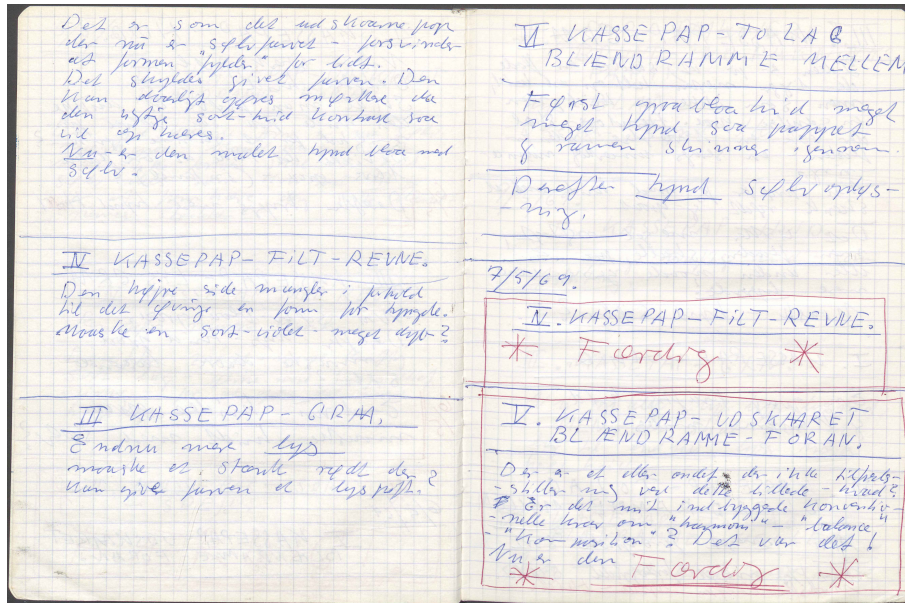 Det er som det udskaarne pap
der nu er sølvfarvet - forsvinder
at formen "fylder" for lidt.
Det skyldes givet farven. Den
kan daarligt gøres mørkere da
den rigtige sort-hvid kontrast saa
vil ophæves.
Nu - er den malet tynd blaa med
sølv.
IV KASSEPAP - FILT - REVNE.
Den højre side mangler i forhold
til det øvrige en form for tyngde.
Maaske en sort-violet - meget dyb?
III KASSEPAP - GRAA.
Endnu mere lys
maaske et stærk rødt der
kan giver farven et lyspift.?
VI KASSEPAP - TO LAG
BLÆNDRAMME MELLEM
Først graablaa hvid meget
meget tynd saa pappet
g ramen skinner igennem.
Derefter tynd sølv oplys-
-ning.
7/5/69.
IV. KASSEPAP - FILT - REVNE.
* Færdig *
V. KASSEPAP - UDSKAARET
BLÆNDRAMME - FORAN.
Der er et eller andet der ikke tilfreds-
-stiller mig ved dette billede - hvad?
Er det mit indbyggede konventio-
-nelle krav om "harmoni" - "balance"
- "komposition"? Det var det!
Nu er den Færdig
* *